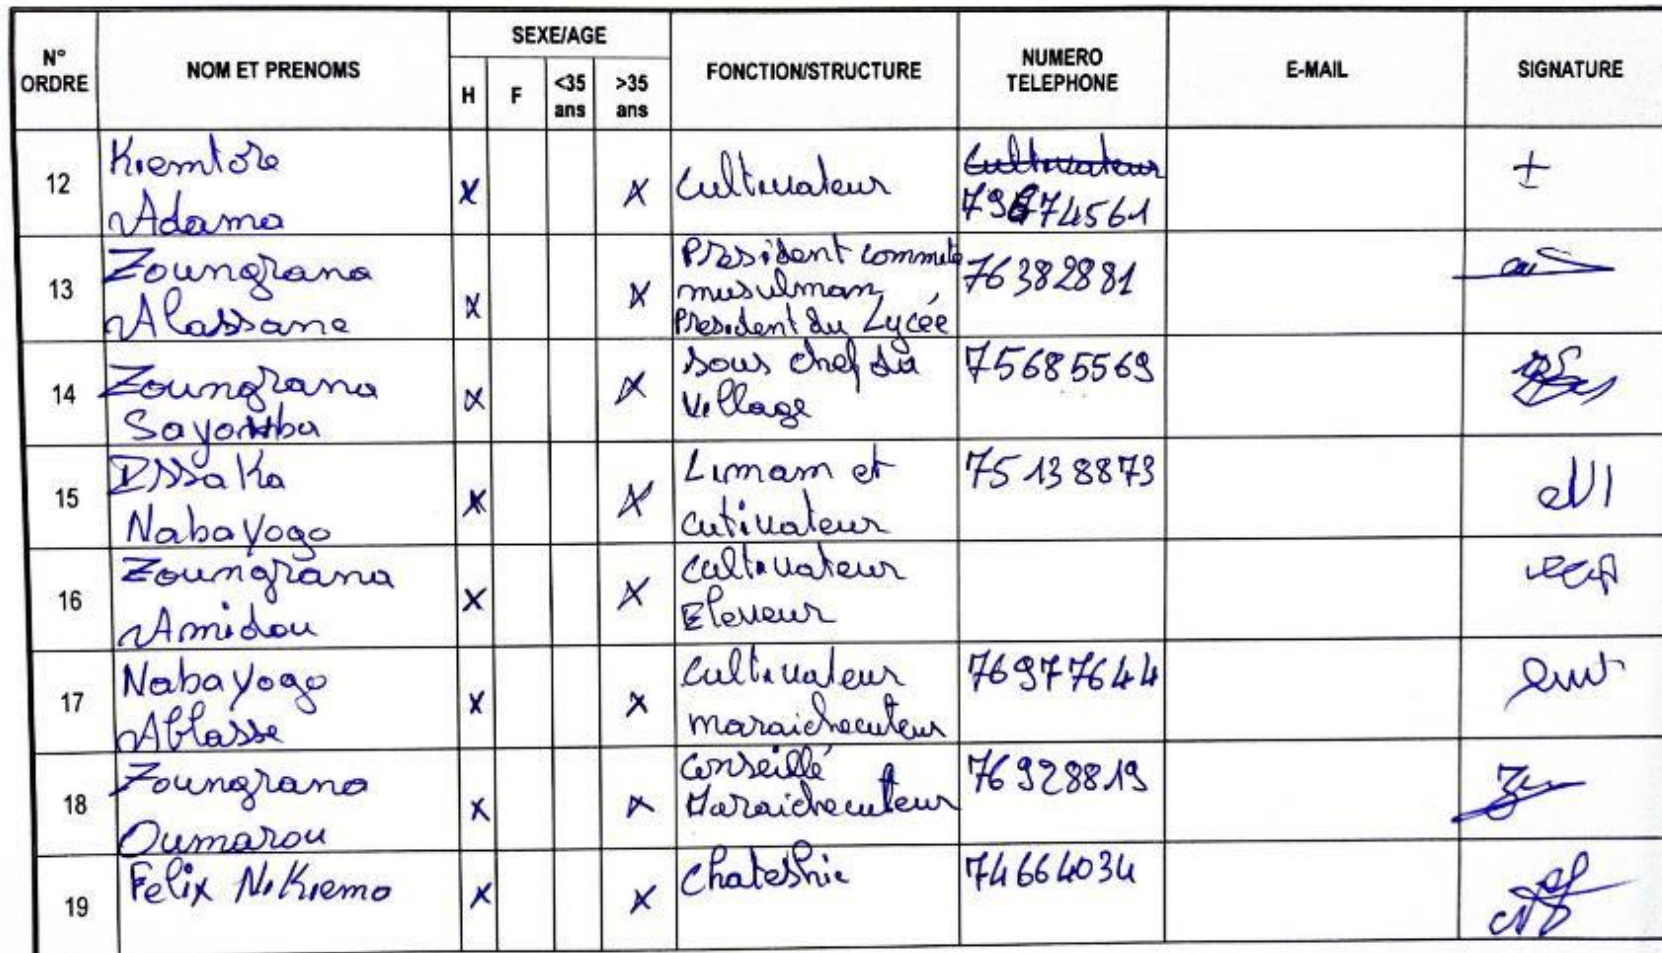 N° ORDRE NOM ET PRENOMS SEXE/AGE FONCTION/STRUCTURE NUMERO TELEPHONE E-MAIL SIGNATURE
H F <35 ans >35 ans
12 Kiemtore Adama X X Cultivateur 79674561
13 Zoungrana Alassane X X Président commité musulman Président du Lycée 76382881
14 Zoungrana Sayouba X X Sous chef du Village 75685569
15 Issaka Nabayogo X X Limam et cutivateur 75138873
16 Zoungrana Amidou X X Cultivateur Eleveur
17 Nabayogo Ablasse X X Cultivateur maraicheculteur 76977644
18 Zoungrana Oumarou X X Conseillé Maraicheculteur 76928819
19 Felix Nikiema X X 74664034